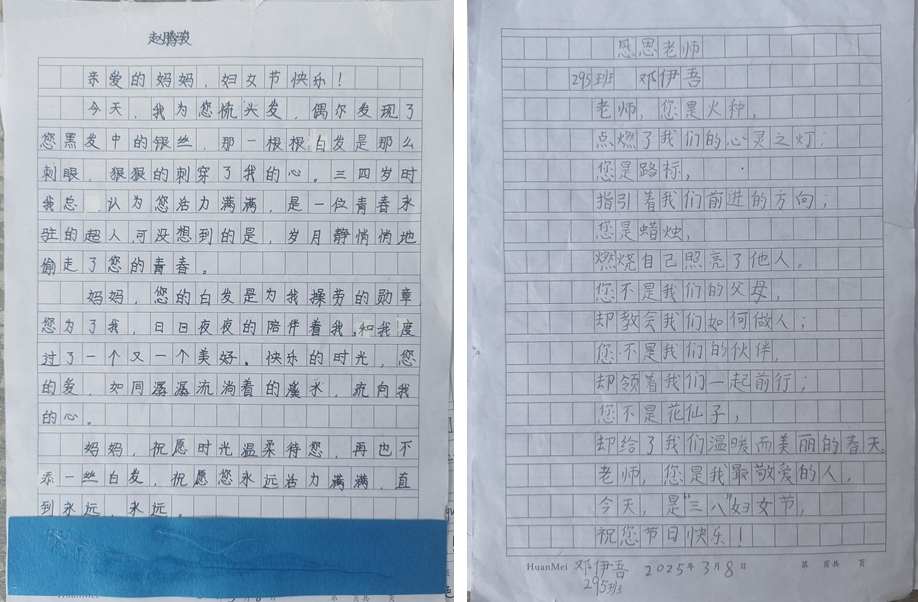 赵腾骏
亲爱的妈妈，妇女节快乐！
今天，我为您梳头发，偶尔发现了
您黑发中的银丝，那一根根白发是那么
刺眼，狠狠的刺穿了我的心。三四岁时
我总认为您活力满满，是一位青春永
驻的超人，可没想到的是，岁月静悄悄地
偷走了您的青春。
妈妈，您的白发是为我操劳的勋章，
您为了我，日日夜夜的陪伴着我，和我度
过了一个又一个美好、快乐的时光，您
的爱，如同潺潺流淌着的溪水，流向我
的心。
妈妈，祝愿时光温柔待您，再也不
添一丝白发，祝愿您永远活力满满，直
到永远，永远。
感恩老师
295班 邓伊吾
老师，您是火种，
点燃了我们的心灵之灯；
您是路标，
指引着我们前进的方向；
您是蜡烛，
燃烧自己照亮了他人。
您不是我们的父母，
却教会我们如何做人；
您不是我们的伙伴，
却领着我们一起前行；
您不是花仙子，
却给了我们温暖而美丽的春天。
老师，您是我最敬爱的人，
今天，是“三八”妇女节，
祝您节日快乐！
HuanMei 邓伊吾 2025年3月8日 第 页共 页
295班